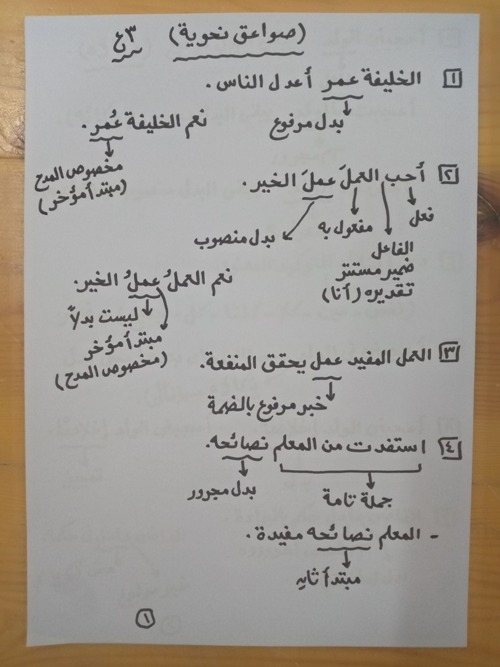 (صواعق نحوية) ع٣
١ الخليفة عمر أعدل الناس.
بدل مرفوع
نعم الخليفة عُمر.
مخصوص المدح
(مبتدأ مؤخر)
٢ أحب العملَ عملَ الخير.
فعل
الفاعل
ضمير مستتر
تقديره (أنا)
مفعول به
بدل منصوب
نعم العملُ عملُ الخير.
ليست بدلاً
مبتدأ مؤخر
(مخصوص المدح)
٣ العمل المفيد عمل يحقق المنفعة.
خبر مرفوع بالضمة
٤ استفدت من المعلم نصائحه.
جملة تامة
بدل مجرور
- المعلم نصائحه مفيدة.
مبتدأ ثانٍ
١